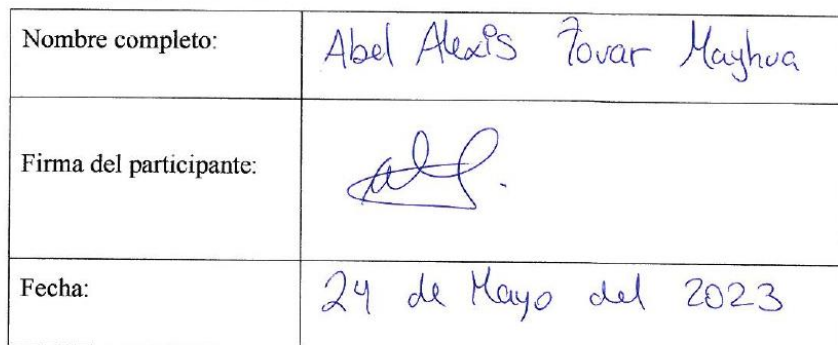 Nombre completo: Abel Alexis Tovar Mayhua
Firma del participante:
Fecha: 24 de Mayo del 2023